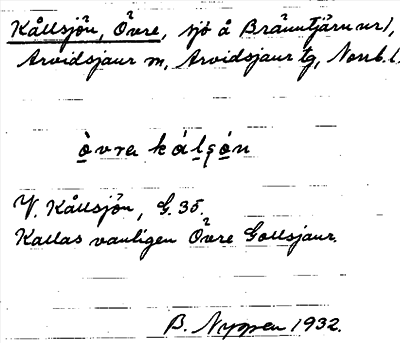 Kållsjön, Övre, sjö å Bränntjärn nr 1,
Arvidsjaur sn, Arvidsjaur tg, Norrb. l.
òvra kálsó̀n
V. Kållsjön, G. 35.
Kallas vanligen Övre Gollsjaur.
B. Nygren 1932.